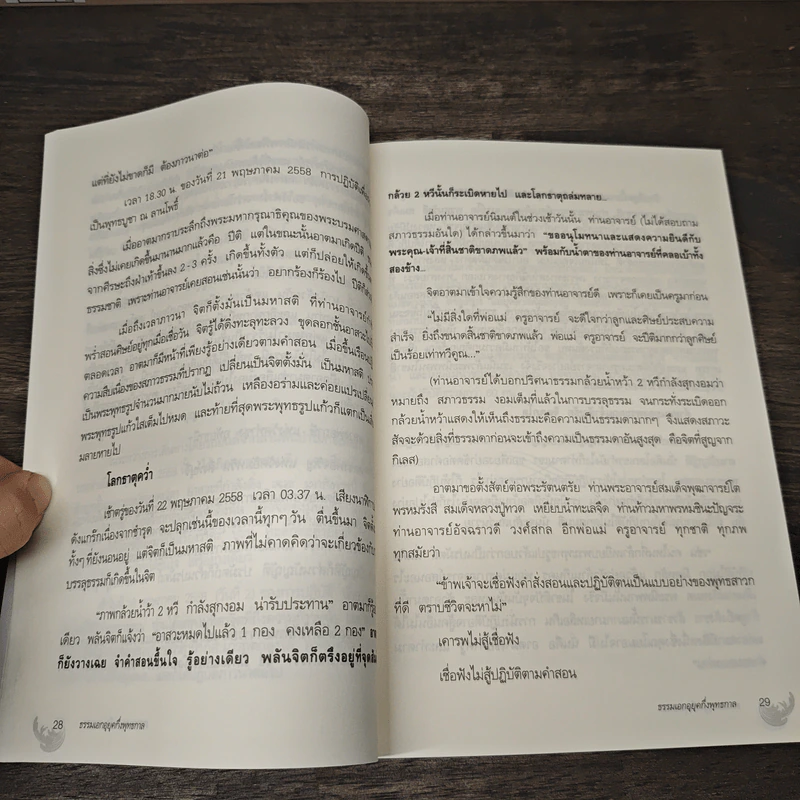 แต่ที่ยังไม่ขาดก็มี ต้องภาวนาต่อ"
เวลา 18.30 น. ของวันที่ 21 พฤษภาคม 2558 การปฏิบัติเพื่อ
เป็นพุทธบูชา ณ ลานโพธิ์
เมื่ออาตมากราบระลึกถึงพระมหากรุณาธิคุณของพระบรมศาสดา
สิ่งซึ่งไม่เคยเกิดขึ้นมานานมากแล้วคือ ปีติ แต่ในขณะนั้นอาตมาเกิดปีติ
จากศีรษะถึงฝ่าเท้าขึ้นลง 2-3 ครั้ง เกิดขึ้นทั้งตัว แต่ก็ปล่อยให้เกิดขึ้น
ธรรมชาติ เพราะท่านอาจารย์เคยสอนเช่นนั้นว่า อยากร้องก็ร้องไป ปีติ
เมื่อถึงเวลาภาวนา จิตก็ตั้งมั่นเป็นมหาสติ ที่ท่านอาจารย์
พร่ำสอนศิษย์อยู่ทุกเมื่อเชื่อวัน จิตรู้ได้ดิ่งทะลุทะลวง ขุดลอกชั้นอาสวะ
ตลอดเวลา อาตมาก็มีหน้าที่เพียงรู้อย่างเดียวตามคำสอน เมื่อขึ้นเรือน
ความสืบเนื่องของสภาวธรรมที่ปรากฏ เปลี่ยนเป็นจิตตั้งมั่น เป็นมหาสติ
เป็นพระพุทธรูปจำนวนมากมายนับไม่ถ้วน เหลืองอร่ามและค่อยแปรเปลี่ยน
พระพุทธรูปแก้วใสเต็มไปหมด และท้ายที่สุดพระพุทธรูปแก้วก็แตกเป็น
มลายหายไป
โลกธาตุคว่ำ
เช้าตรู่ของวันที่ 22 พฤษภาคม 2558 เวลา 03.37 น. เสียงนาฬิกา
ตั้งแกร๊กเนื่องจากชำรุด จะปลุกเช่นนี้ของเวลานี้ทุกๆ วัน ตื่นขึ้นมา จิต
ทั้งๆ ที่ยังนอนอยู่ แต่จิตก็เป็นมหาสติ ภาพที่ไม่คาดคิดว่าจะเกี่ยวข้องกับ
บรรลุธรรมก็เกิดขึ้นในจิต
"ภาพกล้วยน้ำว้า 2 หวี กำลังสุกงอม น่ารับประทาน" อาตมาก็รู้
เดียว พลันจิตก็แจ้งว่า "อาสวะหมดไปแล้ว 1 กอง คงเหลือ 2 กอง"
ก็ยังวางเฉย จำคำสอนขึ้นใจ รู้อย่างเดียว พลันจิตก็ตรึงอยู่ที่จุดเดิม
28 ธรรมเอกอุยุคกึ่งพุทธกาล
กล้วย 2 หวีนั้นก็ระเบิดหายไป และโลกธาตุถล่มทลาย..
เมื่อท่านอาจารย์นิมนต์ในช่วงเช้าวันนั้น ท่านอาจารย์ (ไม่ได้สอบถาม
สภาวธรรมอันใด) ได้กล่าวขึ้นมาว่า "ขออนุโมทนาและแสดงความยินดีกับ
พระคุณเจ้าที่สิ้นชาติขาดภพแล้ว" พร้อมกับน้ำตาของท่านอาจารย์ที่คลอเบ้าทั้ง
สองข้าง..
จิตอาตมาเข้าใจความรู้สึกของท่านอาจารย์ดี เพราะก็เคยเป็นครูมาก่อน
"ไม่มีสิ่งใดที่พ่อแม่ ครูอาจารย์ จะดีใจกว่าลูกและศิษย์ประสบความ
สำเร็จ ยิ่งถึงขนาดสิ้นชาติขาดภพแล้ว พ่อแม่ ครูอาจารย์ จะปีติมากกว่าลูกศิษย์
เป็นร้อยเท่าทวีคูณ..."
(ท่านอาจารย์ได้บอกปริศนาธรรมกล้วยน้ำหว้า 2 หวีกำลังสุกงอมว่า
หมายถึง สภาวธรรม งอมเต็มที่แล้วในการบรรลุธรรม จนกระทั่งระเบิดออก
กล้วยน้ำหว้าแสดงให้เห็นถึงธรรมะคือความเป็นธรรมดามากๆ จึงแสดงสภาวะ
สัจจะด้วยสิ่งที่ธรรมดาก่อนจะเข้าถึงความเป็นธรรมดาอันสูงสุด คือจิตที่สูญจาก
กิเลส)
อาตมาขอตั้งสัตย์ต่อพระรัตนตรัย ท่านพระอาจารย์สมเด็จพุฒาจารย์โต
พรหมรังสี สมเด็จหลวงปู่ทวด เหยียบน้ำทะเลจืด ท่านท้าวมหาพรหมชินะปัญจระ
ท่านอาจารย์อัจฉราวดี วงศ์สกล อีกพ่อแม่ ครูอาจารย์ ทุกชาติ ทุกภพ
ทุกสมัยว่า
"ข้าพเจ้าจะเชื่อฟังคำสั่งสอนและปฏิบัติตนเป็นแบบอย่างของพุทธสาวก
ที่ดี ตราบชีวิตจะหาไม่"
เคารพไม่สู้เชื่อฟัง
เชื่อฟังไม่สู้ปฏิบัติตามคำสอน
ธรรมเอกอุยุคกึ่งพุทธกาล 29